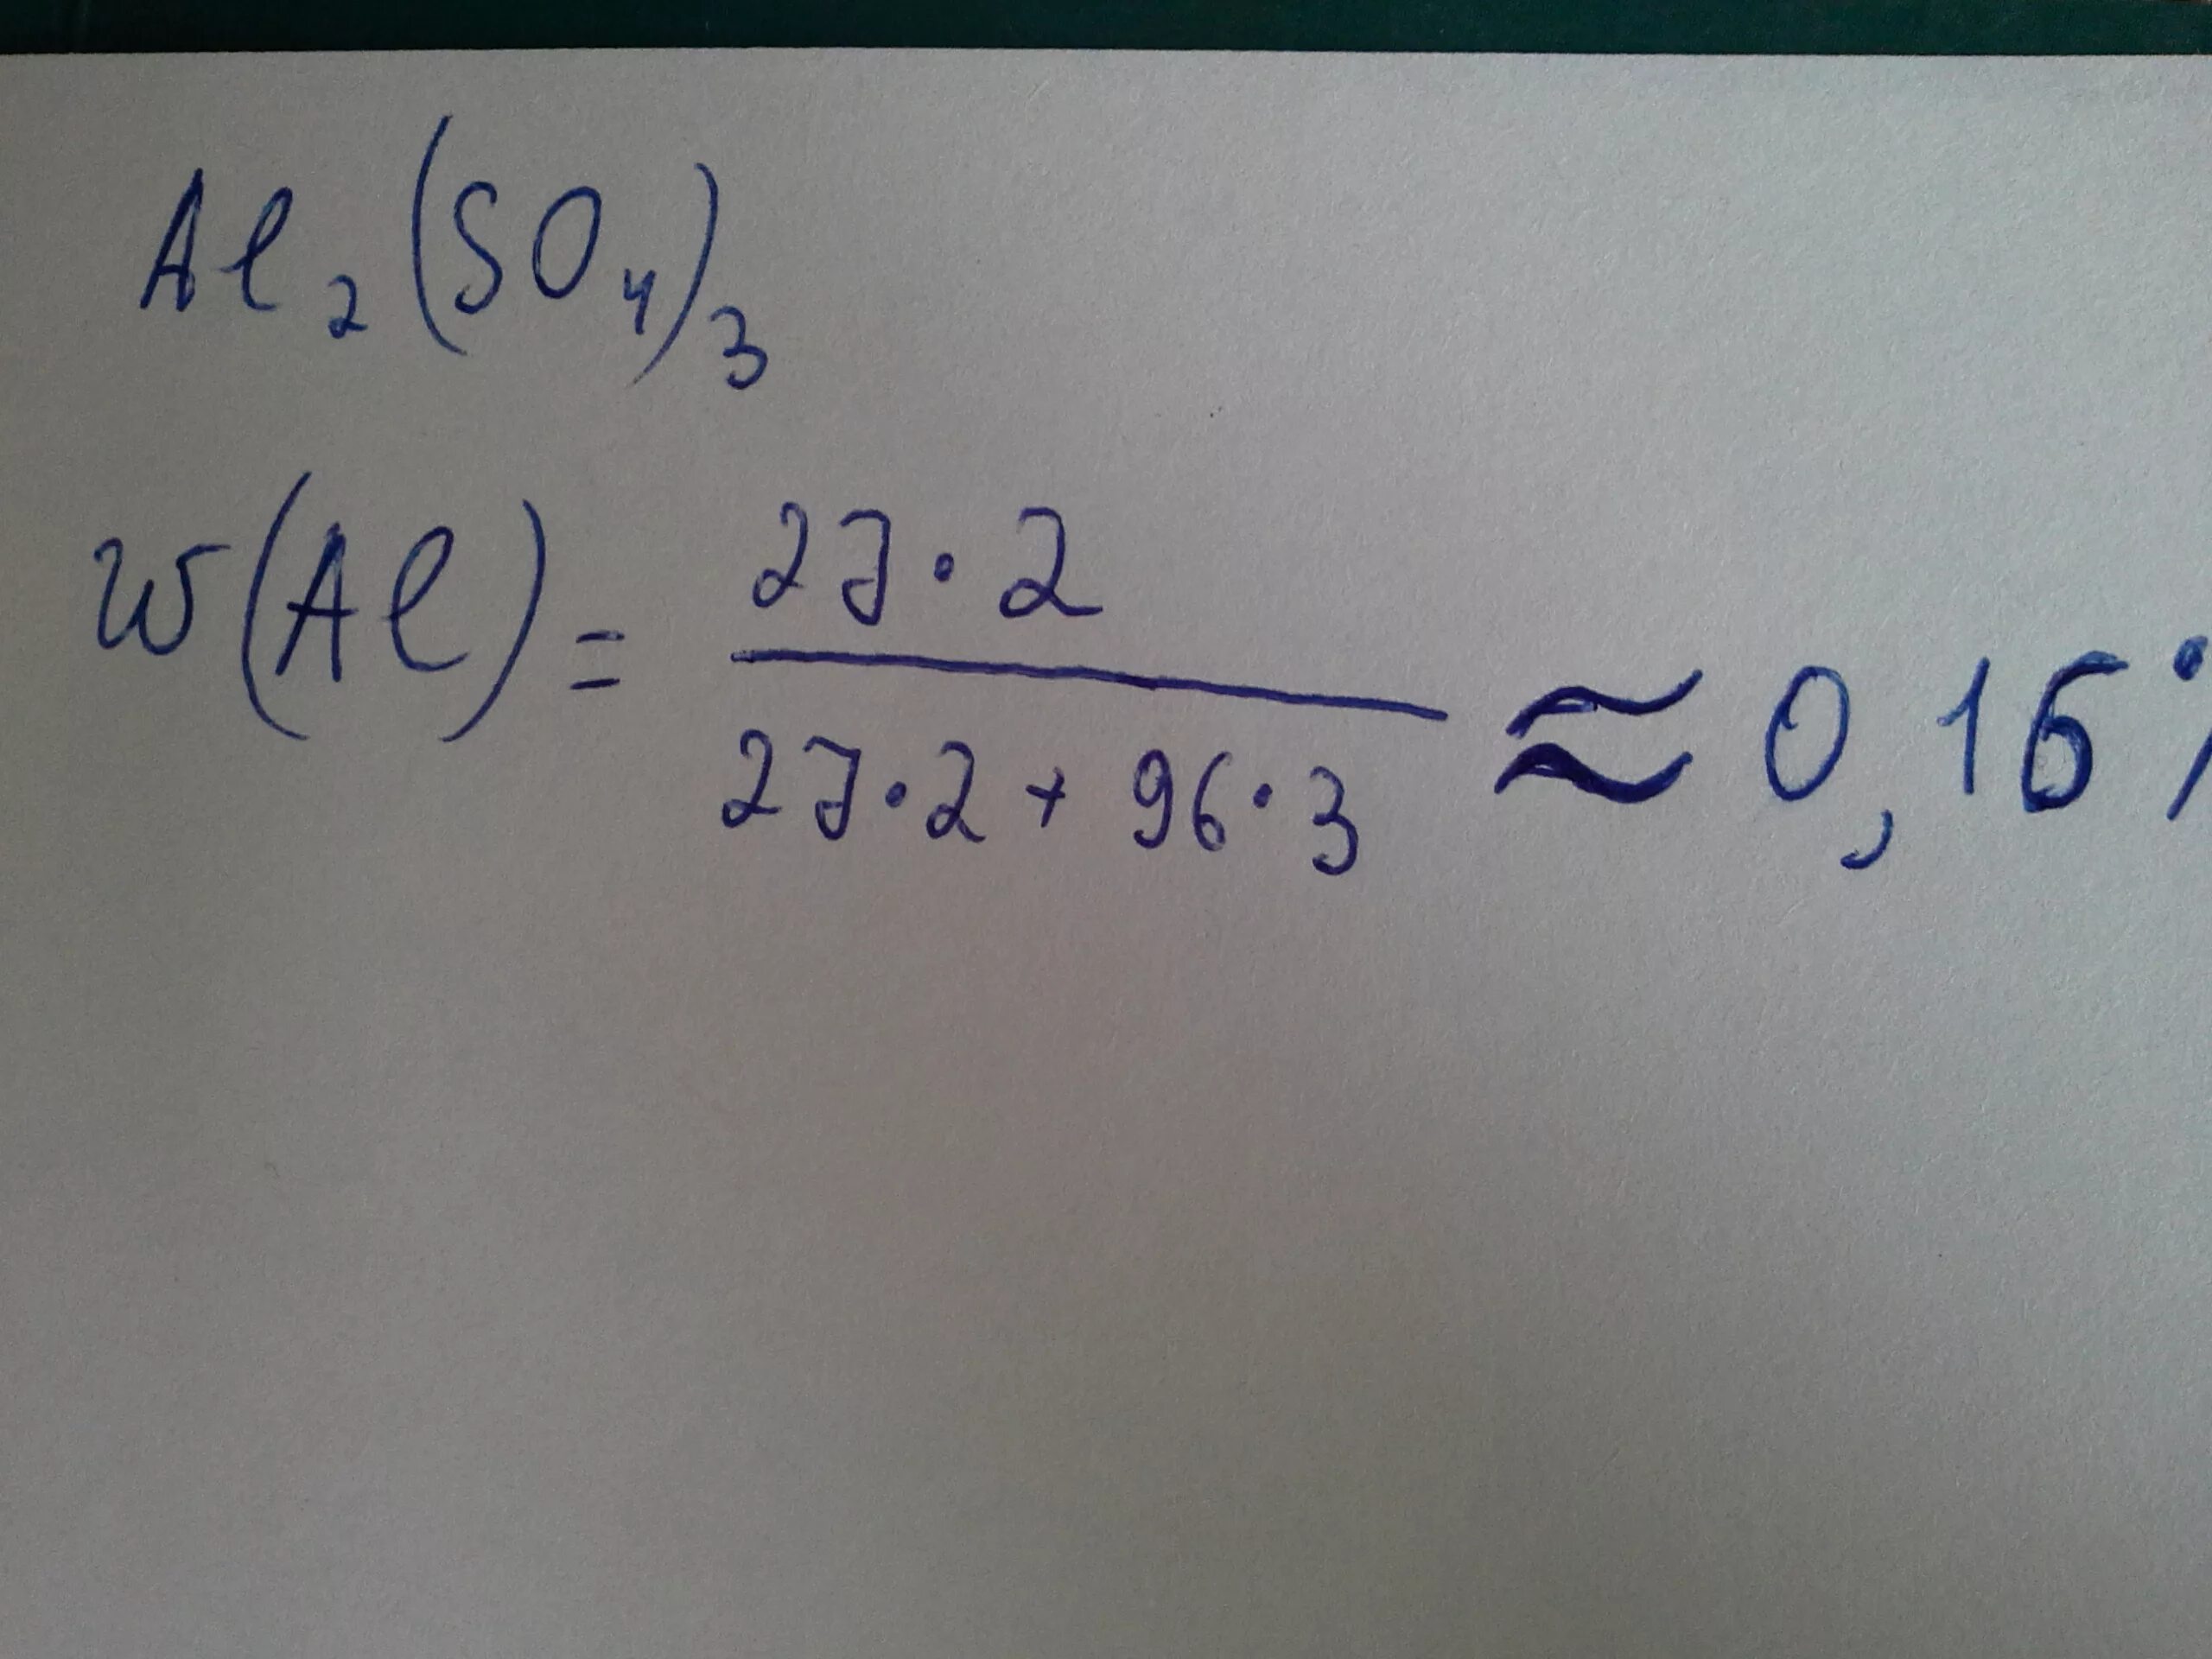 Al₂(SO₄)₃
w(Al) = (27·2)/(27·2 + 96·3) ≈ 0,16%